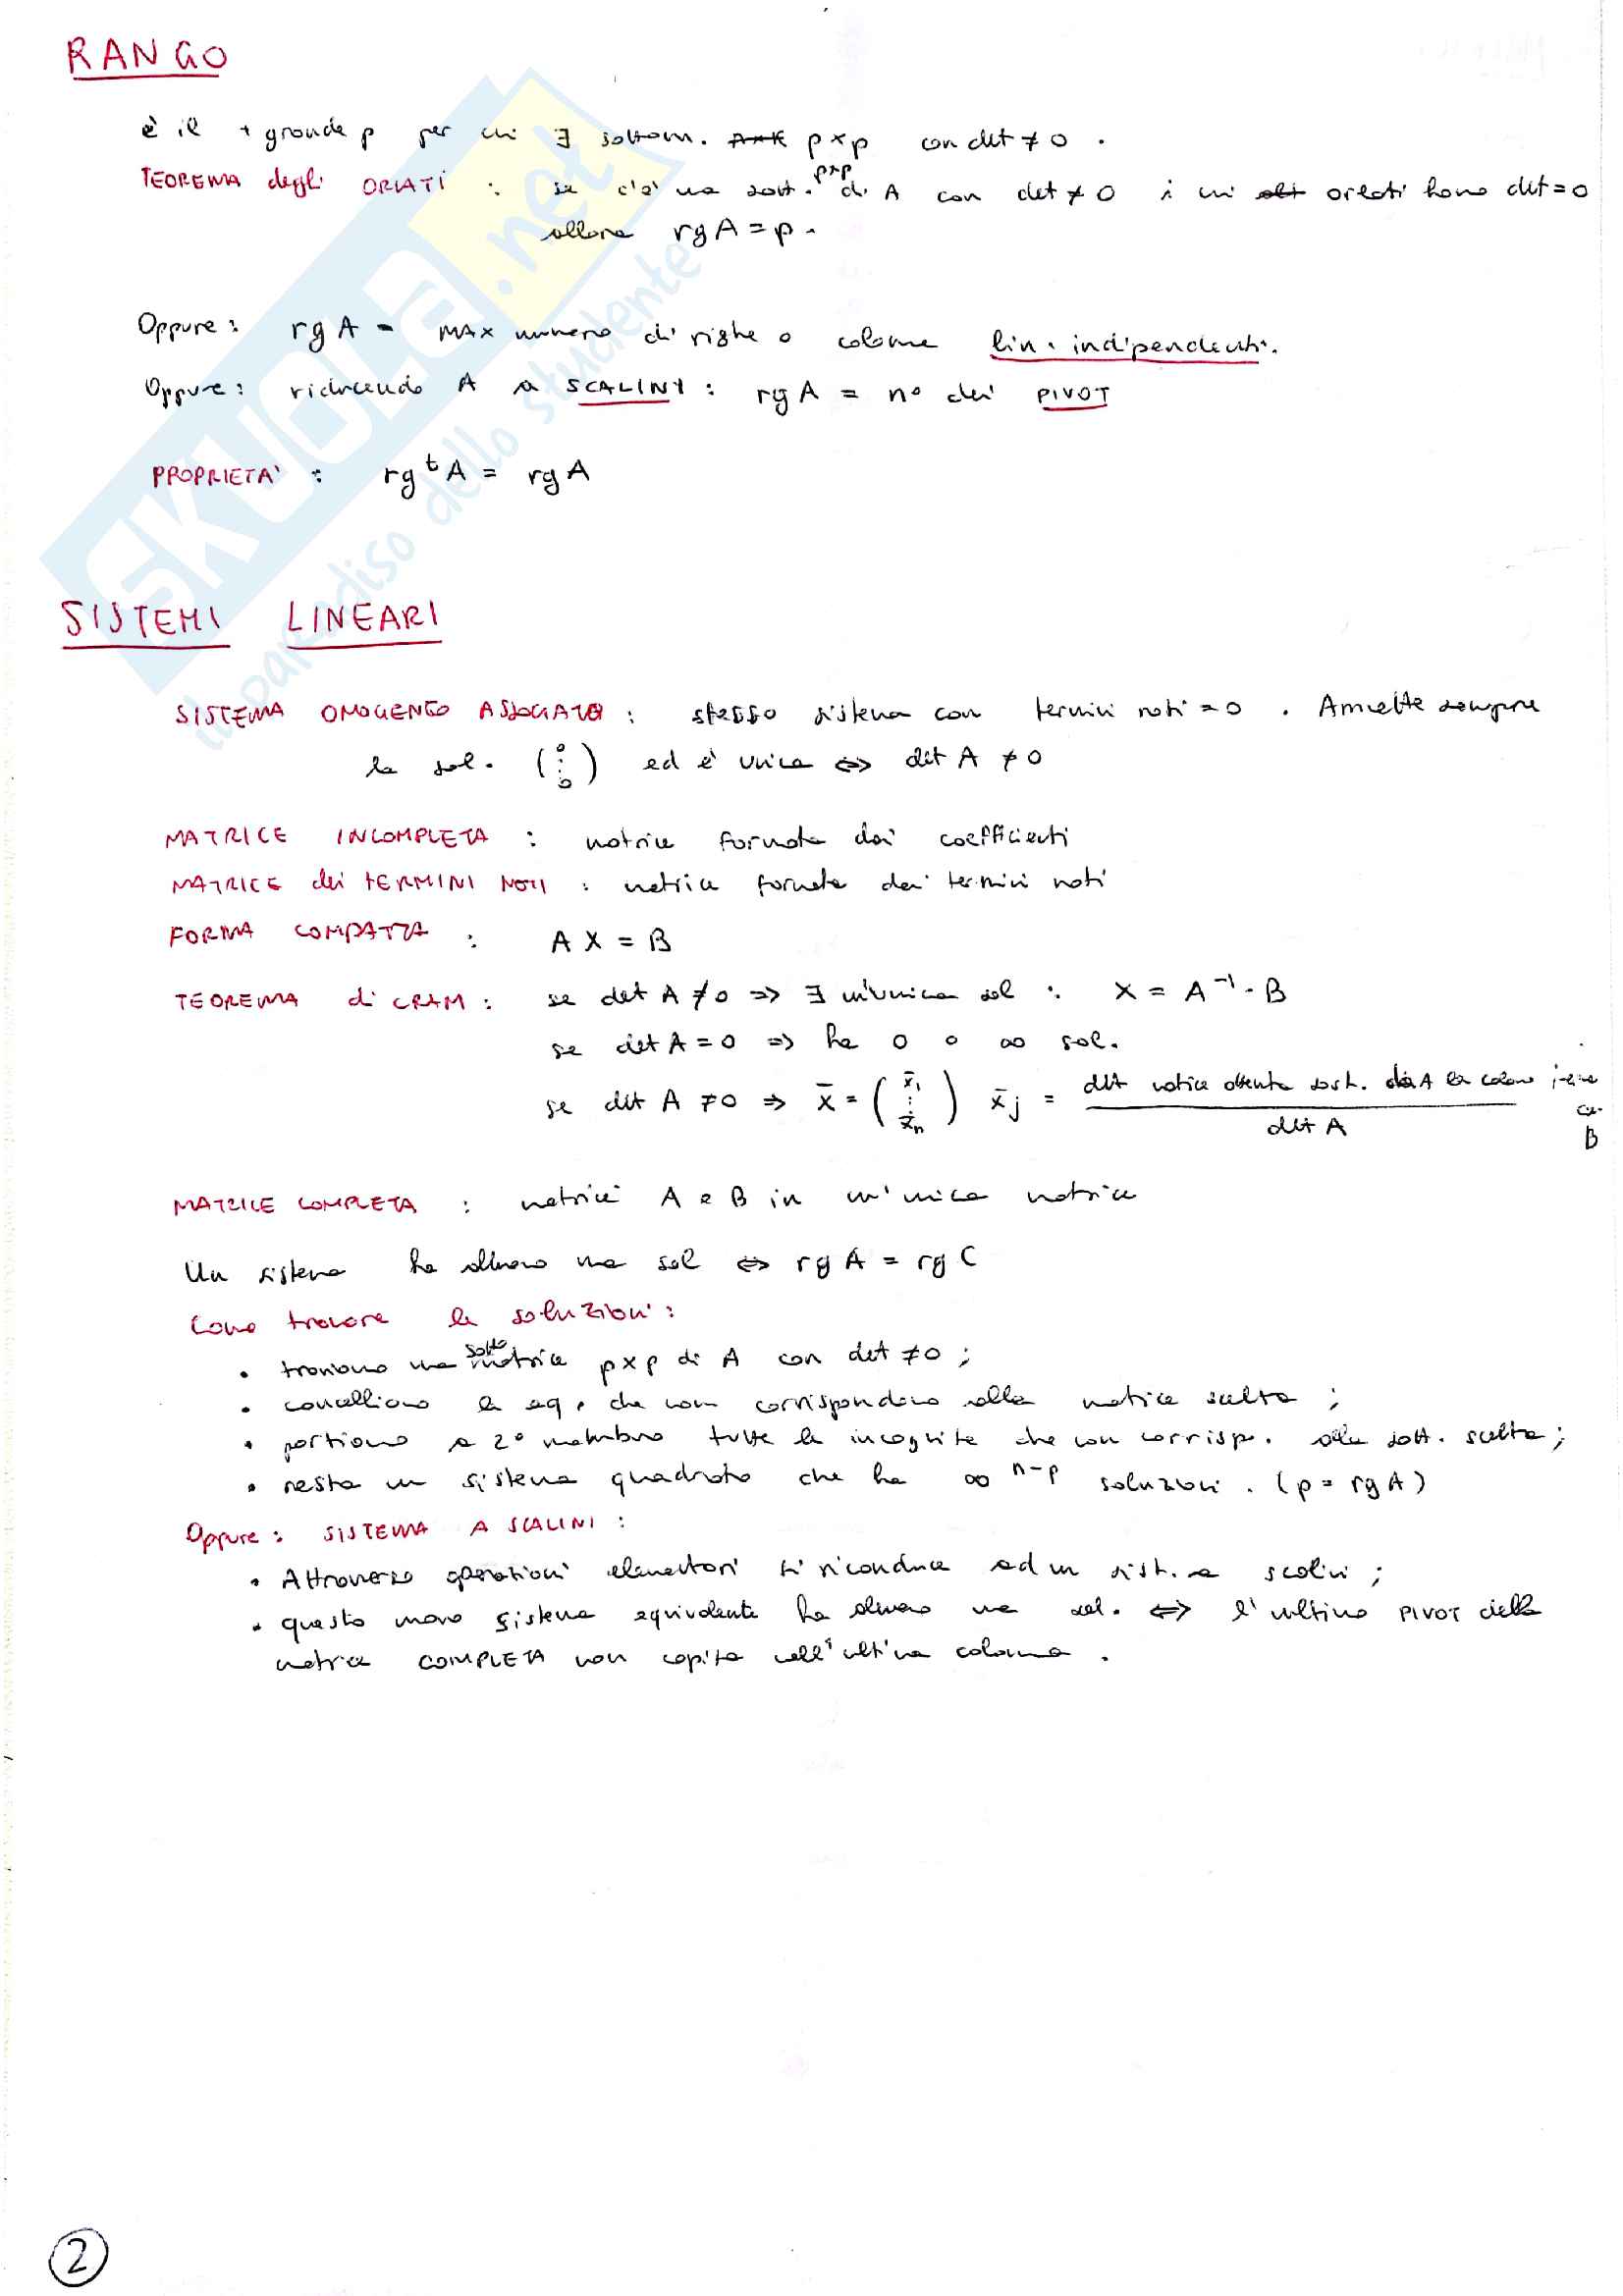 RANGO
è il + grande p per cui ∃ sottom. p×p con det ≠ 0 .
TEOREMA degli ORLATI : se c'è una sott. p×p di A con det ≠ 0 i cui orlati hanno det = 0
allora rg A = p .
Oppure : rg A = MAX numero di righe o colonne lin. indipendenti.
Oppure : riducendo A a SCALINI : rg A = n° dei PIVOT
PROPRIETA' : rg ᵗA = rg A
SISTEMI LINEARI
SISTEMA OMOGENEO ASSOCIATO : stesso sistema con termini noti = 0 . Ammette sempre
la sol. (0 ⋮ 0) ed è unica ⇔ det A ≠ 0
MATRICE INCOMPLETA : matrice formata dai coefficienti
MATRICE dei TERMINI NOTI : matrice formata dai termini noti
FORMA COMPATTA : A X = B
TEOREMA di CRAM : se det A ≠ 0 ⇒ ∃ un'unica sol : X = A⁻¹ · B
se det A = 0 ⇒ ha 0 o ∞ sol.
se det A ≠ 0 ⇒ x̄ = (x̄₁ ⋮ x̄ₙ) x̄j = det matrice ottenuta sost. di A la colonna j-ma con B / det A
MATRICE COMPLETA : matrici A e B in un'unica matrice
Un sistema ha almeno una sol ⇔ rg A = rg C
Come trovare le soluzioni :
• troviamo una sottomatrice p×p di A con det ≠ 0 ;
• cancelliamo le eq. che non corrispondono alla matrice scelta ;
• portiamo a 2° membro tutte le incognite che non corrisp. alla sott. scelta ;
• resta un sistema quadrato che ha ∞ⁿ⁻ᵖ soluzioni . (p = rg A)
Oppure : SISTEMA A SCALINI :
• Attraverso operazioni elementari si riconduce ad un sist. a scalini ;
• questo nuovo sistema equivalente ha almeno una sol. ⇔ l'ultimo PIVOT della
matrice COMPLETA non capita nell'ultima colonna .
2
SKUOLA.net
il paradiso dello studente